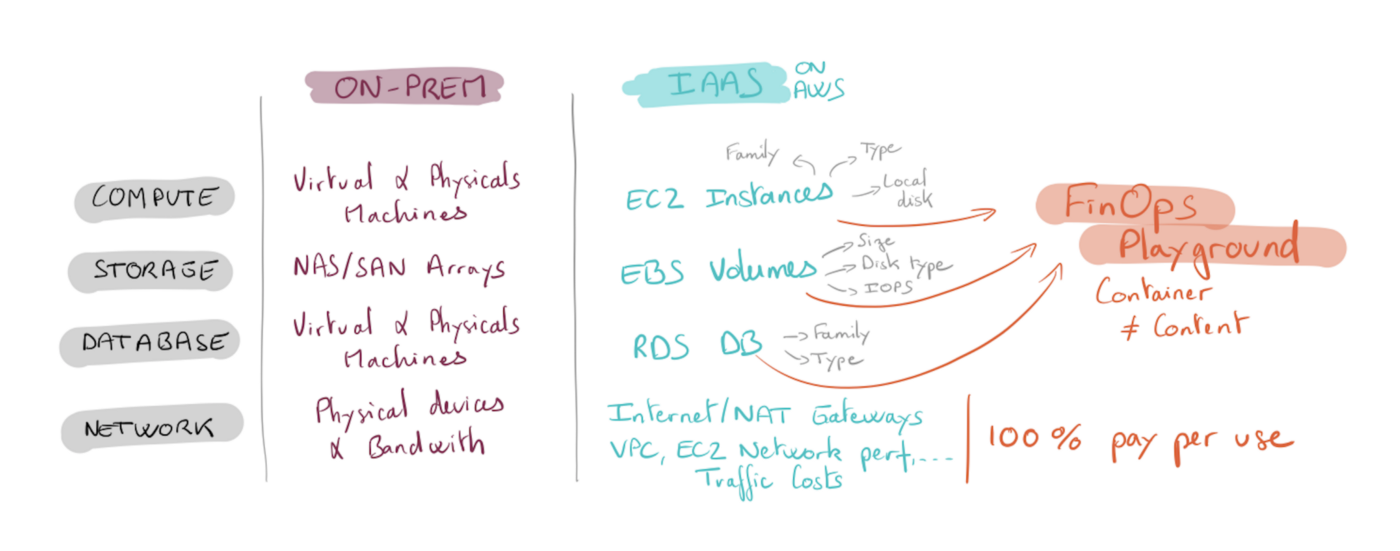 ON-PREM
IAAS
ON
AWS
COMPUTE
Virtual & Physicals
Machines
Family
Type
EC2 Instances
Local
disk
STORAGE
NAS/SAN Arrays
EBS Volumes
Size
Disk type
IOPS
DATABASE
Virtual & Physicals
Machines
RDS DB
Family
Type
NETWORK
Physical devices
& Bandwith
Internet/NAT Gateways
VPC, EC2 Network perf,....
Traffic Costs
FinOps
Playground
Container
≠ Content
100% pay per use